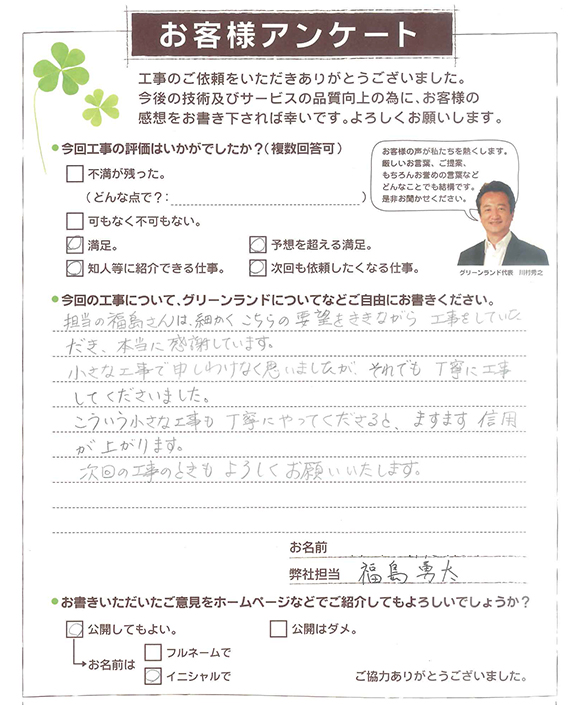 お客様アンケート
工事のご依頼をいただきありがとうございました。
今後の技術及びサービスの品質向上の為に、お客様の
感想をお書き下されば幸いです。よろしくお願いします。
今回工事の評価はいかがでしたか?(複数回答可)
不満が残った。
(どんな点で?:)
可もなく不可もない。
満足。
予想を超える満足。
知人等に紹介できる仕事。
次回も依頼したくなる仕事。
お客様の声が私たちを熱くします。
厳しいお言葉、ご提案、
もちろんお誉めの言葉など
どんなことでも結構です。
是非お聞かせください。
グリーンランド代表 川村秀之
今回の工事について、グリーンランドについてなどご自由にお書きください。
担当の福島さんは、細かくこちらの要望をききながら 工事をしていた
だき、本当に感謝しています。
小さな工事で申しわけなく思いましたが、それでも丁寧に工事
してくださいました。
こういう小さな工事も丁寧にやってくださると、ますます信用
が上がります。
次回の工事のときもよろしくお願いいたします。
お名前
弊社担当 福島勇太
お書きいただいたご意見をホームページなどでご紹介してもよろしいでしょうか?
公開してもよい。
公開はダメ。
お名前は
フルネームで
イニシャルで
ご協力ありがとうございました。